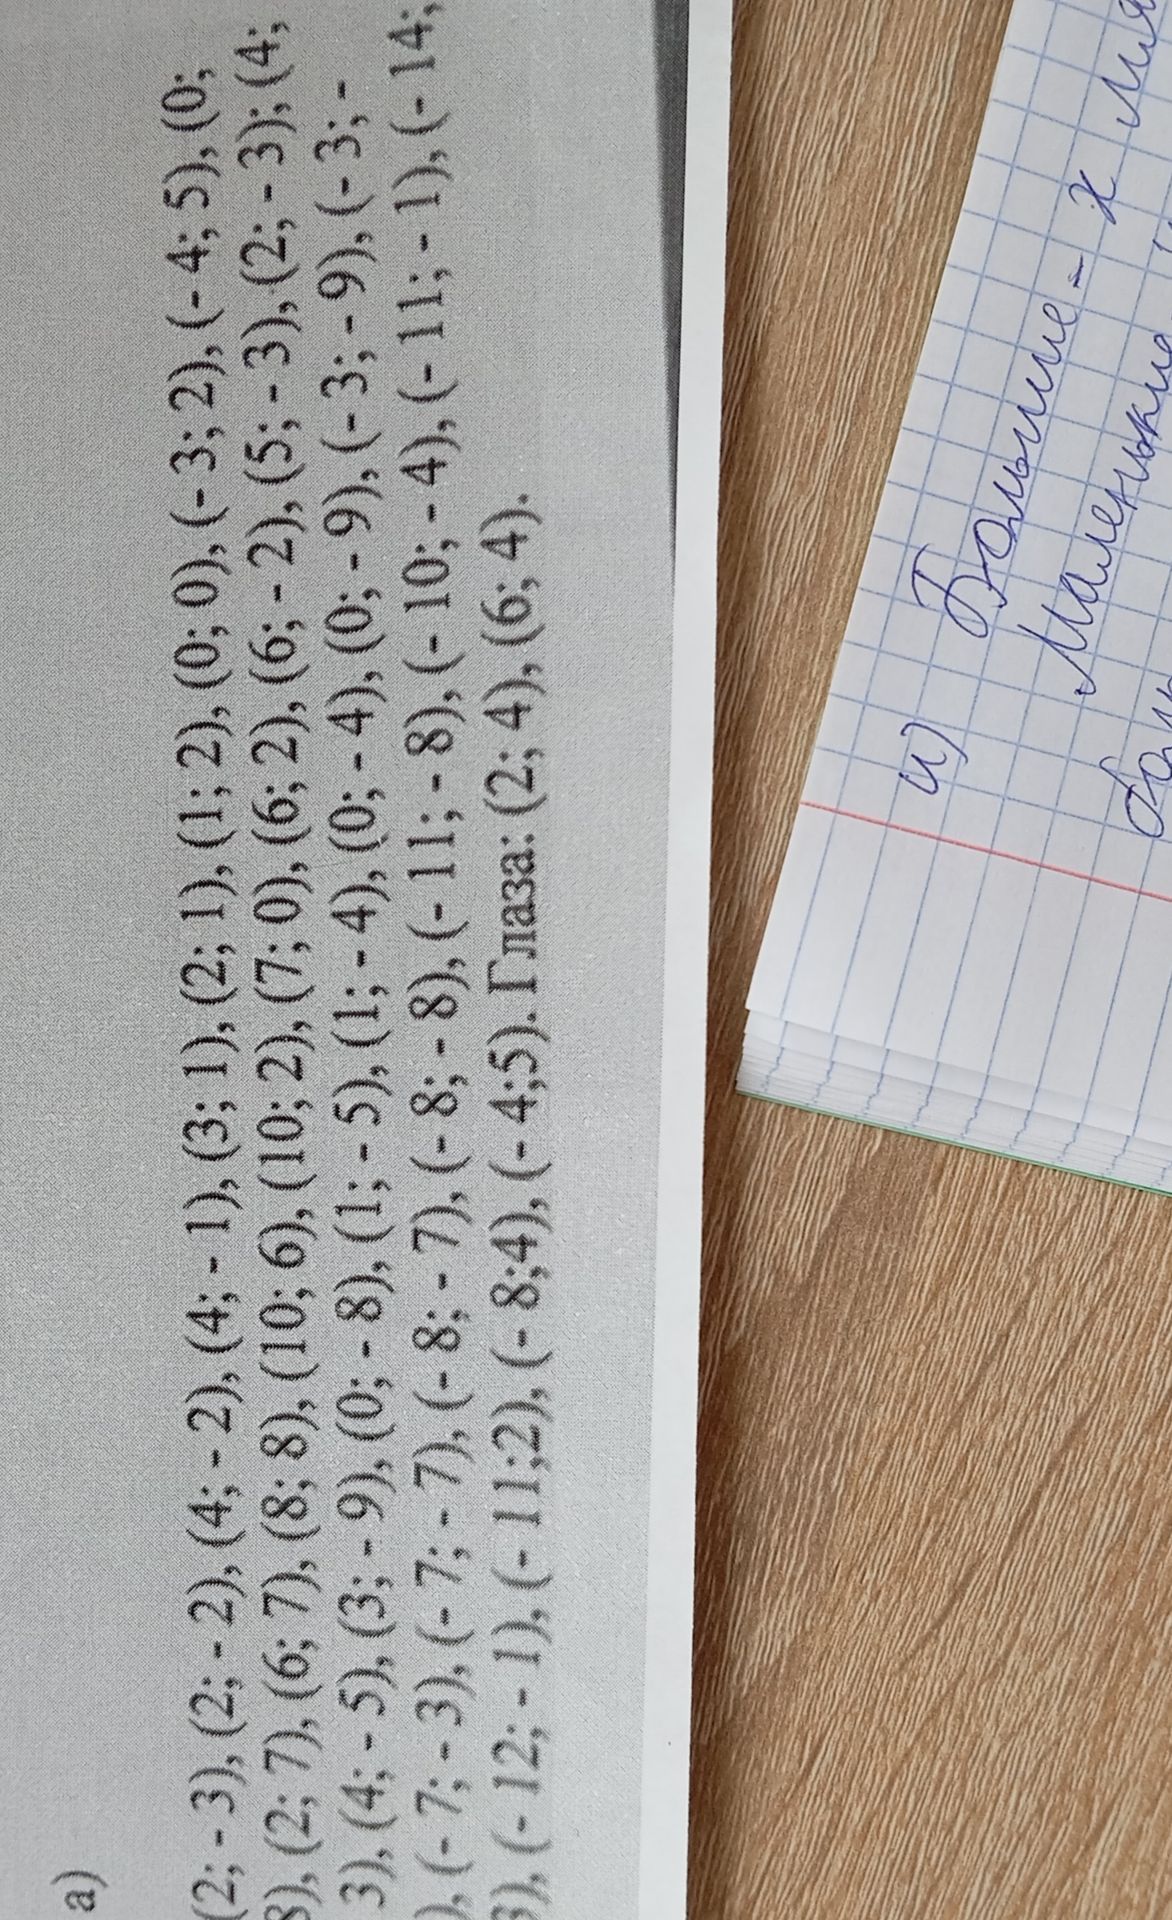 а)
(2; - 3), (2; - 2), (4; - 2), (4; - 1), (3; 1), (2; 1), (1; 2), (0; 0), (- 3; 2), (- 4; 5), (0;
8), (2; 7), (6; 7), (8; 8), (10; 6), (10; 2), (7; 0), (6; 2), (6; - 2), (5; - 3), (2; - 3); (4;
3), (4; - 5), (3; - 9), (0; - 8), (1; - 5), (1; - 4), (0; - 4), (0; - 9), (- 3; - 9), (- 3; -
), (- 7; - 3), (- 7; - 7), (- 8; - 7), (- 8; - 8), (- 11; - 8), (- 10; - 4), (- 11; - 1), (- 14;
3), (- 12; - 1), (- 11;2), (- 8;4), (- 4;5). Глаза: (2; 4), (6; 4).
и) Большие - х
Маленькие